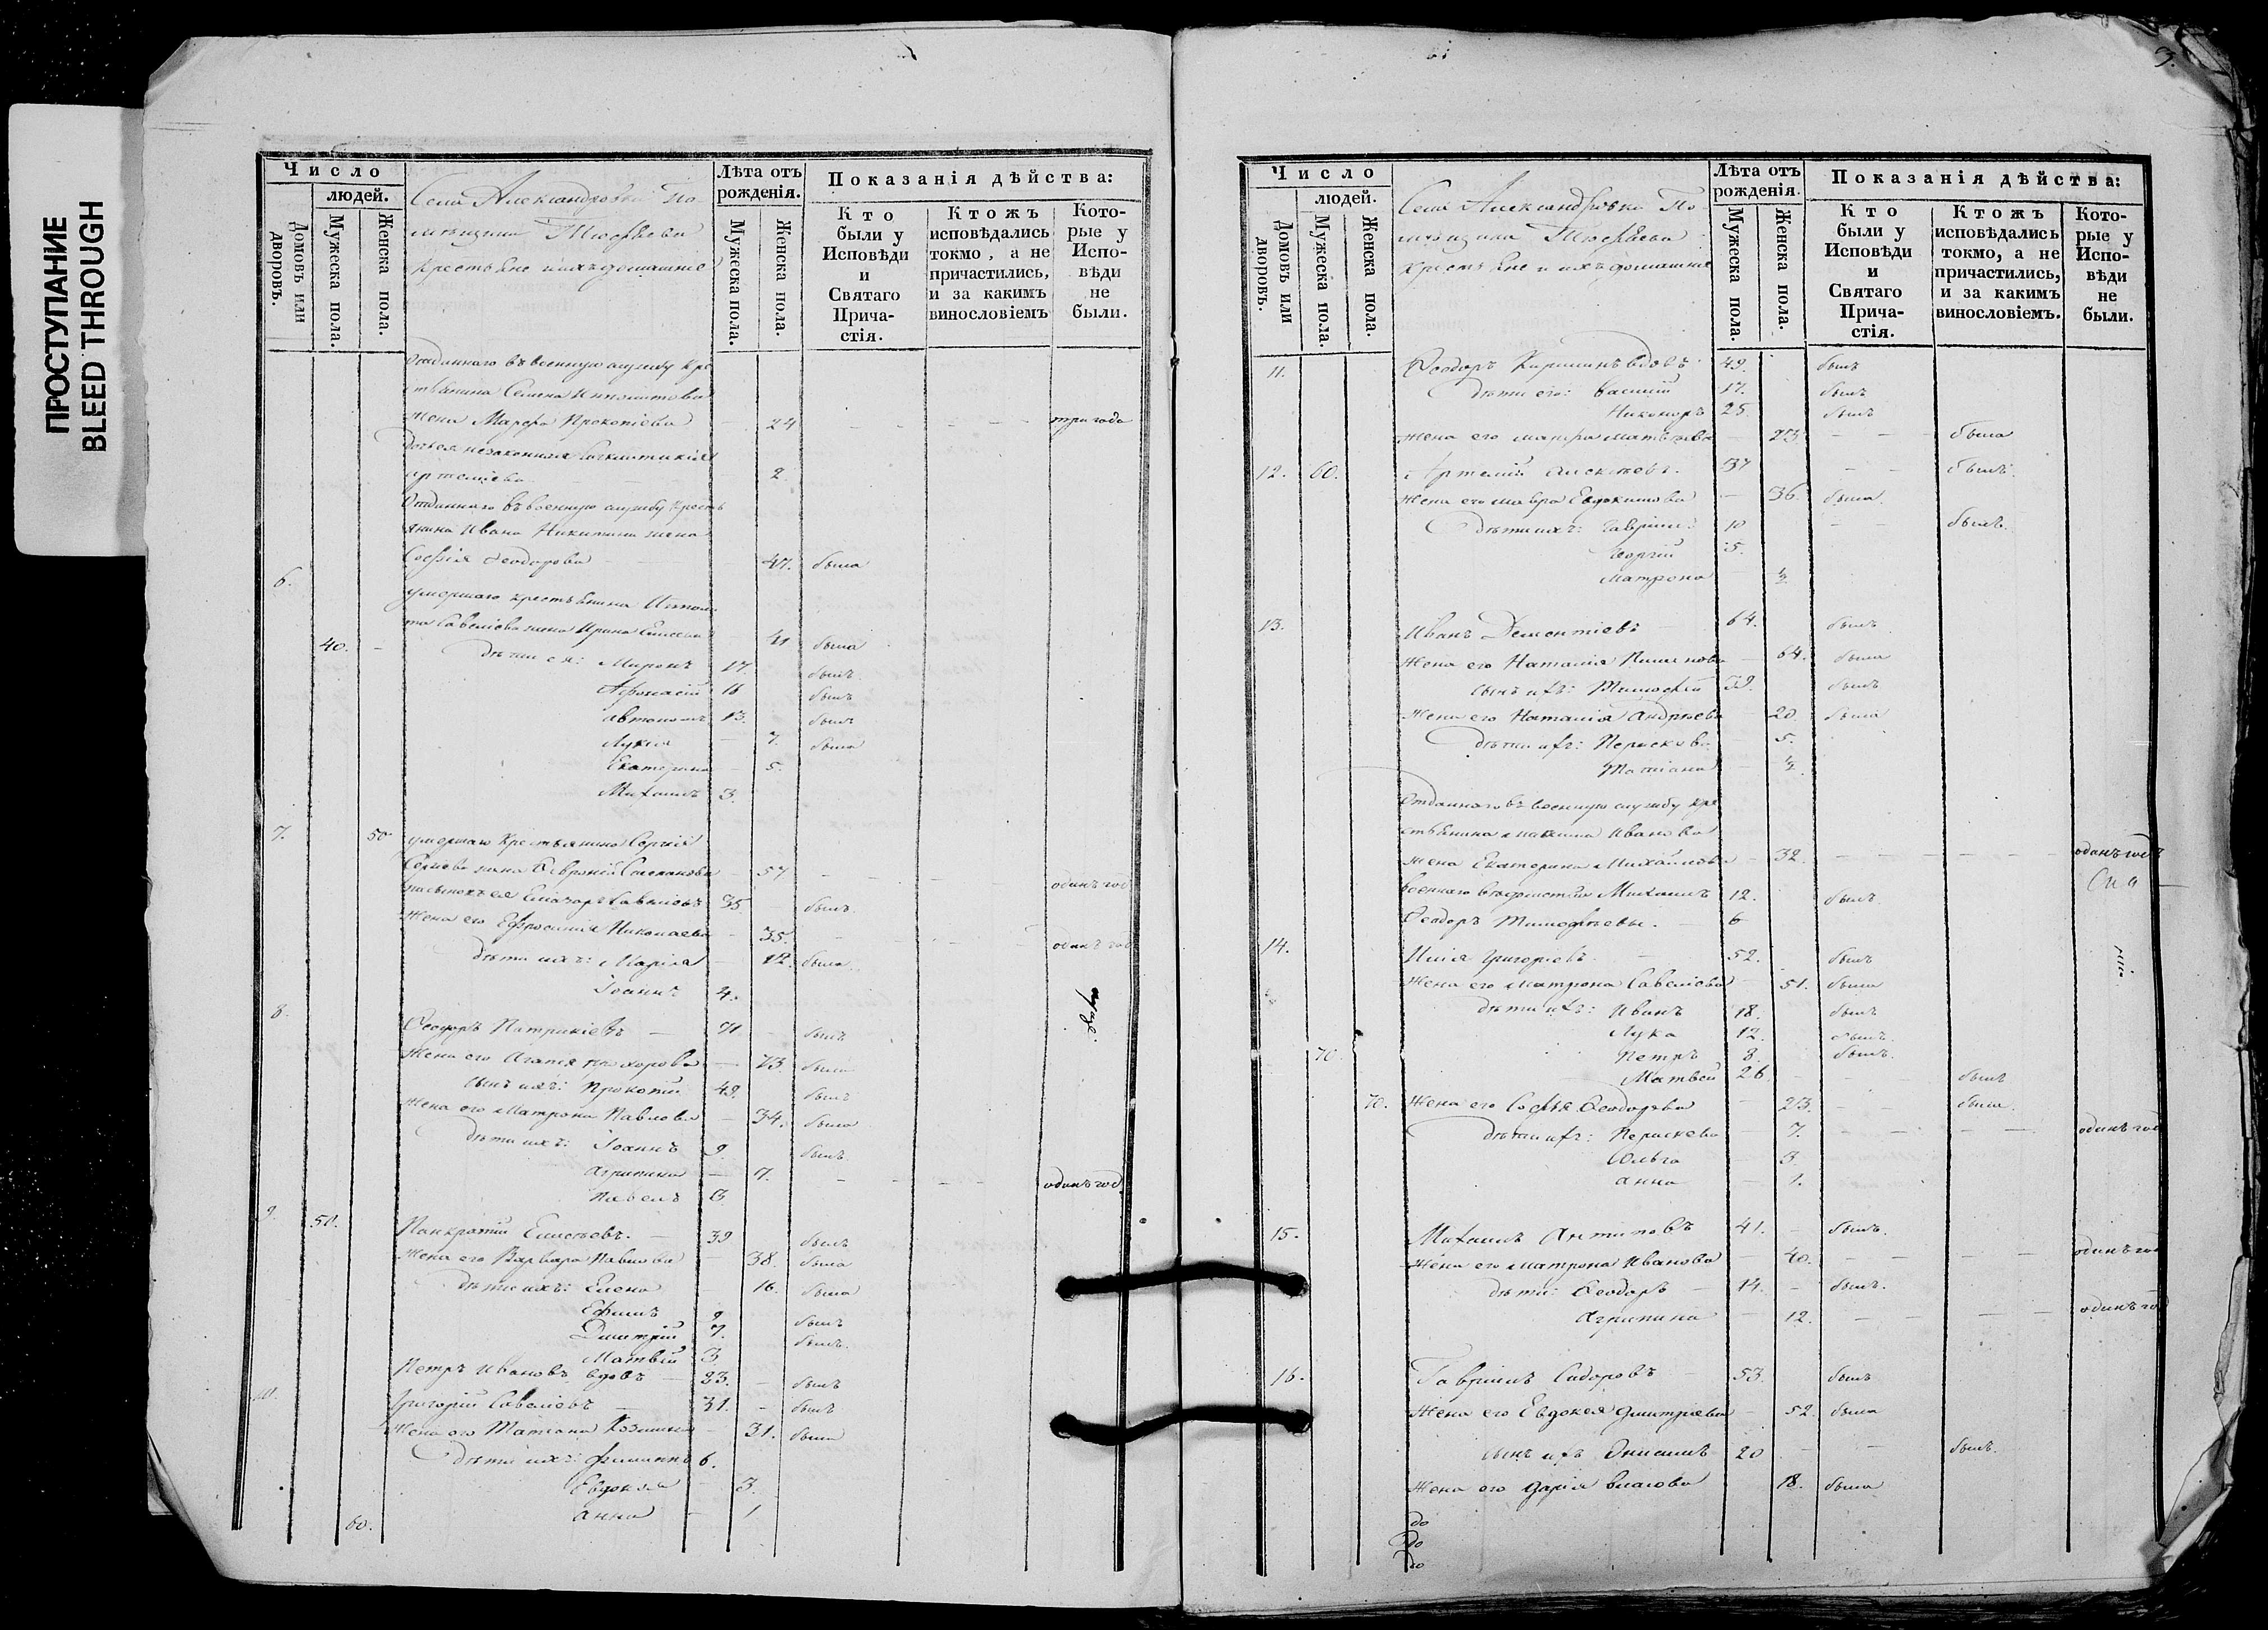 ПРОСТУПАНИЕ
BLEED THROUGH
Число
людей.
Домовъ или дворовъ.
Мужеска пола.
Женска пола.
Села Александровки По-
мѣщика
крестьяне и ихъ домашніе
Лѣта отъ рожденія.
Мужеска пола.
Женска пола.
Показанія дѣйства:
Кто были у Исповѣди и Святаго Прича-стія.
Ктожъ исповѣдались токмо, а не причастились, и за какимъ винословіемъ
Кото-рые у Испо-вѣди не были.
Отданнаго въ военную службу кре
стьянина Семена
жена Марфа Прокопіева 24 три года
незаконная
артеміева 2.
Отданнаго въ военную службу кресть
янина Ивана Никитина жена
Софія Феодорова 47. была
6. умершаго крестьянина Ипполи
та Савеліева жена Ирина 41 была
40. дѣти ея: Миронъ 17. былъ.
Афонасій 16 былъ
Автономъ 13. былъ
Лукія 7. была
Екатерина 5.
Михаилъ 3.
7. 50 умершаго крестьянина Сергія
жена Февронія 57 одинъ год
пасынокъ ея Елизаръ Савеліевъ 35 былъ.
Жена его Ефросинія Николаева 35. одинъ год
дѣти ихъ: Марія 12. была.
Іоаннъ 4.
8. Феодоръ Патрикіевъ 71 былъ
Жена его Агапія прохорова 73 была
сынъ ихъ: Прокопій 49. былъ
Жена его Матрона Павлова 34. была
дѣти ихъ: Іоаннъ 9 былъ.
Агрипина 7. одинъ год.
Павелъ 3
9. 50. Панкратій Елисѣевъ. 39 былъ
Жена его Варвара Павлова 38. была
дѣти ихъ: Елена 16. была
Ефимъ 9 былъ
Дмитрій 7. былъ.
Матвій 3
Петръ Ивановъ вдовъ 23. былъ
10. Григорій Савеліевъ 31. былъ
Жена его Татіана Козмина 31. была
дѣти ихъ: Филиппъ 6.
Евдокія 3.
60. Анна 1
3.
Число
людей.
Домовъ или дворовъ.
Мужеска пола.
Женска пола.
Села Александровки По-
мѣщика
крестьяне и ихъ домашніе
Лѣта отъ рожденія.
Мужеска пола.
Женска пола.
Показанія дѣйства:
Кто были у Исповѣди и Святаго Прича-стія.
Ктожъ исповѣдались токмо, а не причастились, и за какимъ винословіемъ.
Кото-рые у Испо-вѣди не были.
11. Феодоръ Кирилинъ вдовъ 49. былъ
дѣти его: Василій 17. былъ
Никоноръ 25. былъ
Жена его Матвѣева 23 была
12. 60. Артемій Алексѣевъ. 37 былъ.
Жена его Мавра Евдокимова 36. была.
дѣти ихъ: Гавріилъ 10 былъ.
Георгій 5.
Матрона ½
13. Иванъ Дементіевъ 64. былъ
Жена его Наталія 64. была
сынъ ихъ: Тимофей 39. былъ
Жена его Наталія Андрѣева 20. была
дѣти ихъ: Параскева 5.
Татіана ½
Отданнаго въ военную службу кре
стьянина Максима Иванова
жена Екатерина Михайлова 32. одинъ годъ
Михаилъ 12. былъ.
Феодоръ Тимофѣевы. 6
14. Илія Григоріевъ 52. былъ
Жена его Матрона Савеліева 51. была
дѣти ихъ: Иванъ 18. былъ
Лука 12. былъ.
70. Петръ 8. былъ.
Матвей 26 былъ
70. Жена его Софья Феодорова 23. была.
дѣти ихъ: Параскева 7. одинъ год
Ольга 3.
Анна 1.
15. Михаилъ Антиповъ 41. былъ.
Жена его Матрона Иванова 40. одинъ год
дѣти: Феодоръ 14. былъ.
Агрипина 12. одинъ год
16. Гавріилъ Сидоровъ 53. былъ
Жена его Евдокея Дмитріева 52. была
сынъ ихъ Онисимъ 20 былъ.
Жена его Дарія Власова 18. была